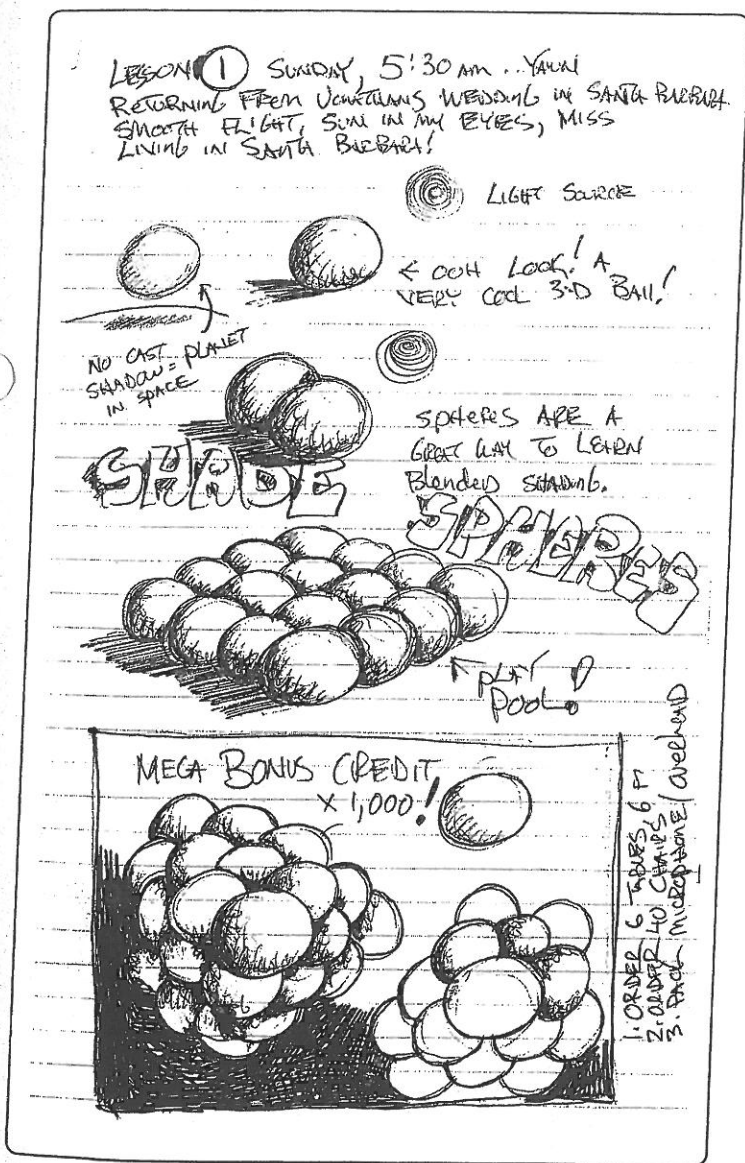 LESSON 1 SUNDAY, 5:30 AM .. YAWN
RETURNING FROM JONATHANS WEDDING IN SANTA BARBARA.
SMOOTH FLIGHT, SUN IN MY EYES, MISS
LIVING IN SANTA BARBARA!
LIGHT SOURCE
← OOH LOOK! A
VERY COOL 3-D BALL!
NO CAST
SHADOW = PLANET
IN SPACE
SPHERES ARE A
GREAT WAY TO LEARN
Blended SHADING.
SHADE
SPHERES
PLAY
POOL!
MEGA BONUS CREDIT
x 1,000!
1. ORDER 6 TABLES 6 FT
2. ORDER 40 CHAIRS
3. PACK MICROPHONE / overhead